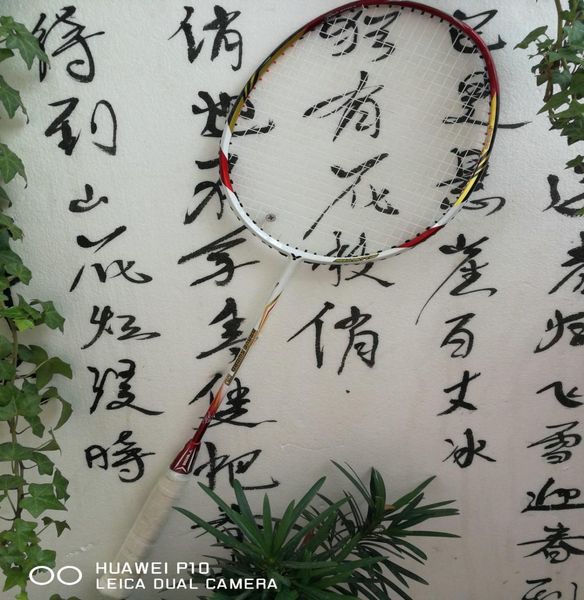 春归飞雪迎春到
已是悬崖百丈冰
犹有花枝俏
俏也不争春
待到山花烂漫时
HUAWEI P10
LEICA DUAL CAMERA